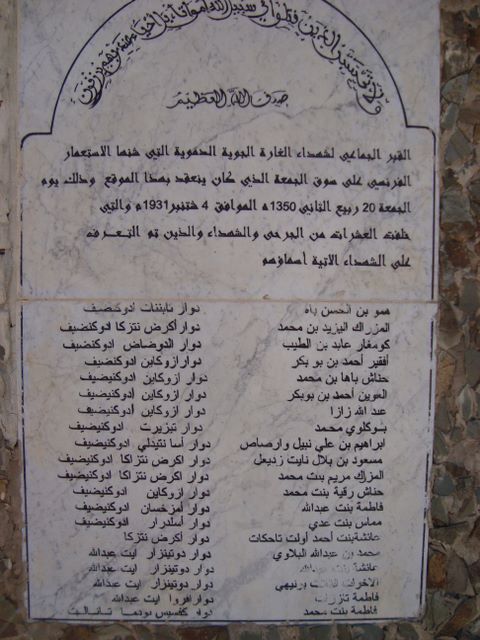 ولا تحسبن الذين قتلوا في سبيل الله أمواتا بل أحياء عند ربهم يرزقون
صدق الله العظيم
القبر الجماعي لشهداء الغارة الجوية الدموية التي شنها الاستعمار
الفرنسي على سوق الجمعة الذي كان ينعقد بهذا الموقع وذلك يوم
الجمعة 20 ربيع الثاني 1350ه الموافق 4 شتنبر 1931م والتي
خلفت العشرات من الجرحى والشهداء والذين تم التعرف
على الشهداء الاتية أسماؤهم
همو بن الحسن باه دوار تابننات ادوكنضيف
المزراك اليزيد بن محمد دوار أكرض نتزكا ادوكنضيف
كومغار عابد بن الطيب دوار الدوضاض ادوكنضيف
أفقير أحمد بن بو بكر دوار ازوكاين ادوكنضيف
حناش باها بن محمد دوار ازوكاين ادوكنضيف
العوين أحمد بن بوبكر دوار ازوكاين أدوكنضيف
عبد الله زازا دوار ازوكاين أدوكنضيف
بوكلوي محمد دوار تبزيرت ادوكنضيف
ابراهيم بن علي نبيل وارصاص دوار أسا نتيدلي ادوكنضيف
مسعود بن بلال نايت زديعل دوار اكرض نتزاكا ادوكنضيف
المزاك مريم بنت محمد دوار اكرض نتزاكا ادوكنضيف
حناش رقية بنت محمد دوار ازوكاين ادوكنضيف
فاطمة بنت عبدالله دوار أمزخسان ادوكنضيف
مماس بنت عدي دوار أسلدرار ادوكنضيف
عائشة بنت أحمد أولت تاحكات دوار أكرض نتزكا
محمد بن عبدالله البلاوي دوار دوتينزار ايت عبدالله
عائشة بنت دوار دوتينزار ايت عبدالله
دوار دوتينزار ايت عبدالله
فاطمة دوار افروا ايت عبدالله
فاطمة بنت محمد دوار